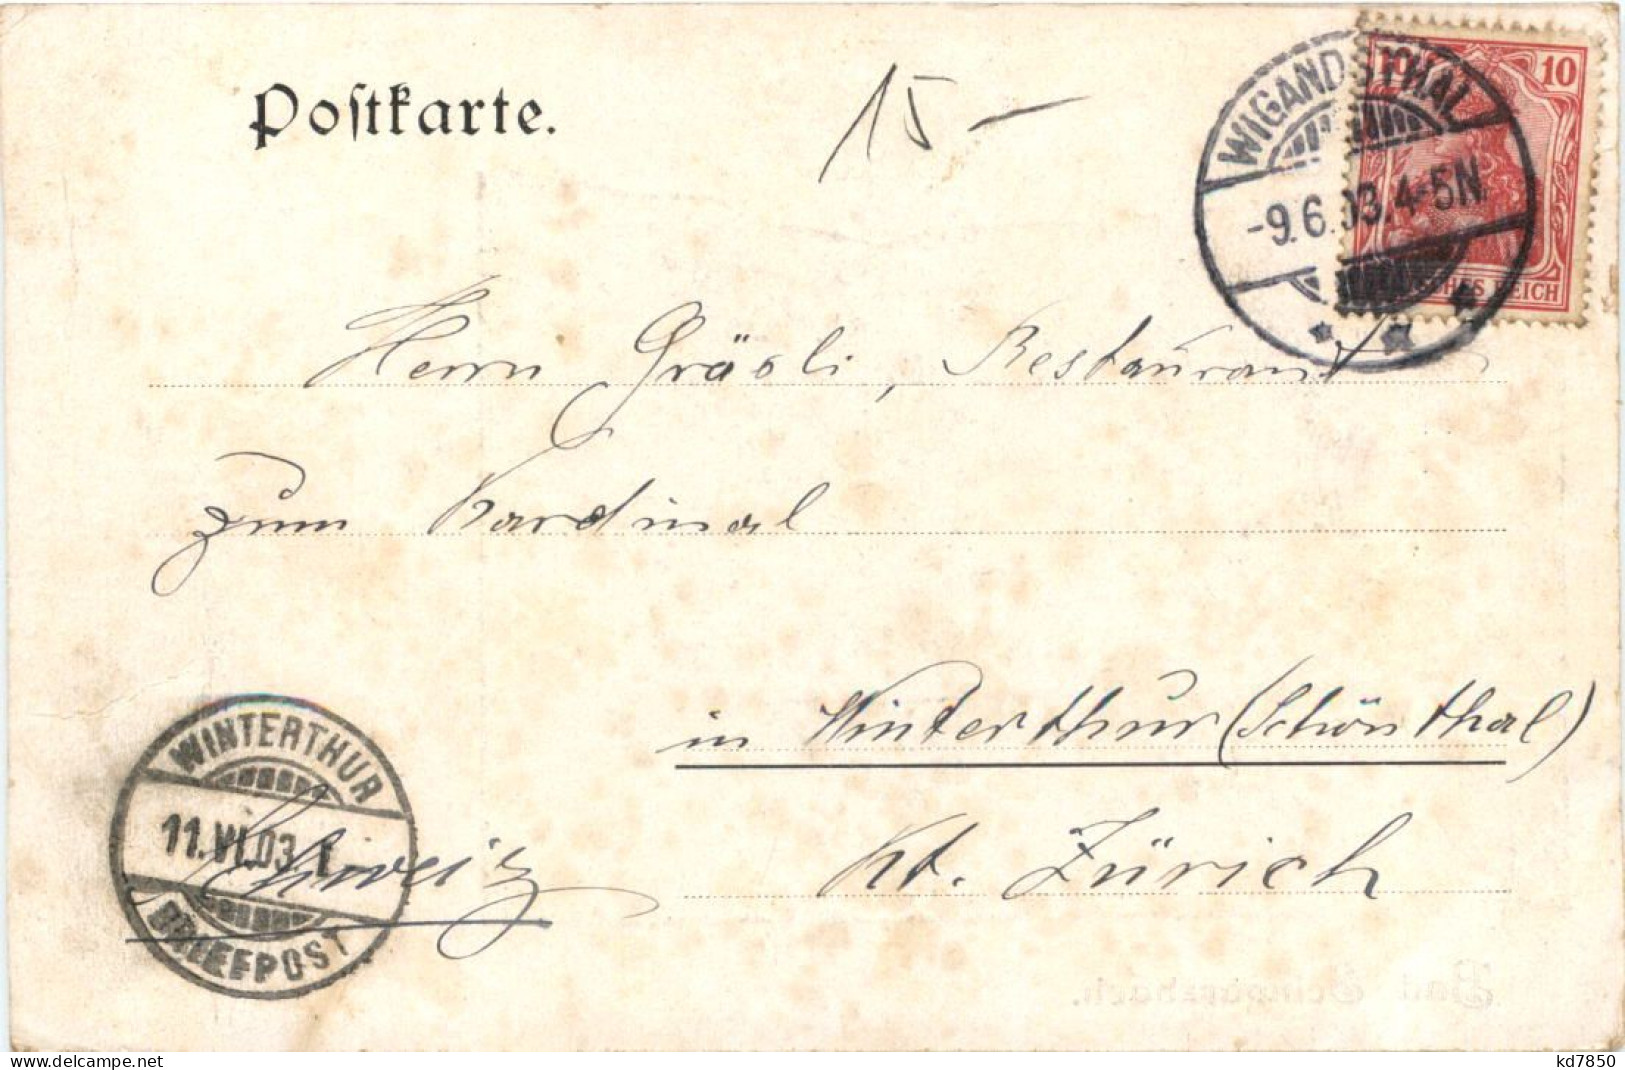 Poſtkarte.
15 –
WIGANDSTHAL
-9.6.03.4-5N.
10 10
DEUTSCHES REICH
Herrn Gräsli, Restaurant
zum Kardinal
in Winterthur (Schönthal)
Kt. Zürich
Schweiz
WINTERTHUR
11.VI.03
BRIEFPOST
Bad Schwarzbach.
www.delcampe.net
kd7850